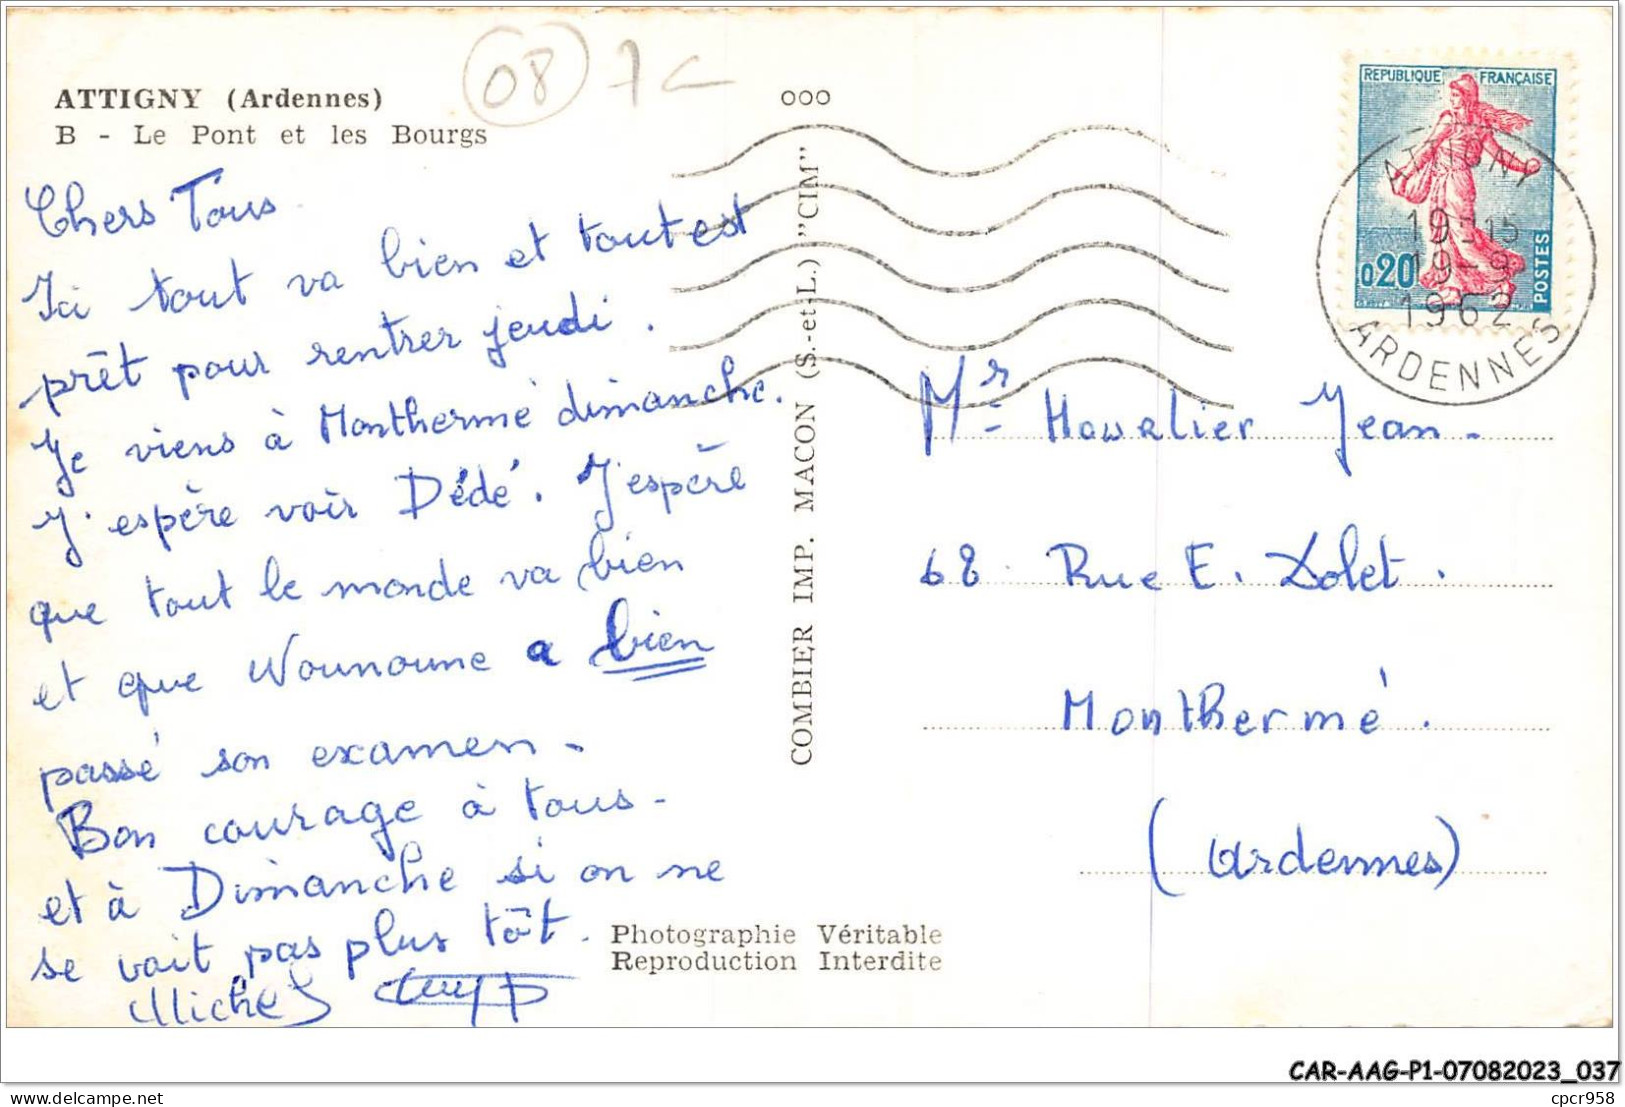 ATTIGNY (Ardennes)
B - Le Pont et les Bourgs
08 7c
Chers Tous
Ici tout va bien et tout est
prêt pour rentrer jeudi.
Je viens à Monthermé dimanche.
J'espère voir Dédé. J'espère
que tout le monde va bien
et que Nounoune a bien
passé son examen.
Bon courage à tous.
et à Dimanche si on ne
se voit pas plus tôt.
Michel
000
COMBIER IMP. MACON (S.-et-L.) "CIM"
Photographie Véritable
Reproduction Interdite
REPUBLIQUE FRANÇAISE
0,20
POSTES
ATTIGNY
19-15
19-9
1962
ARDENNES
Mr Howalier Jean.
68 Rue E. Dolet.
Monthermé.
(Ardennes)
CAR-AAG-P1-07082023_037
cpcr958